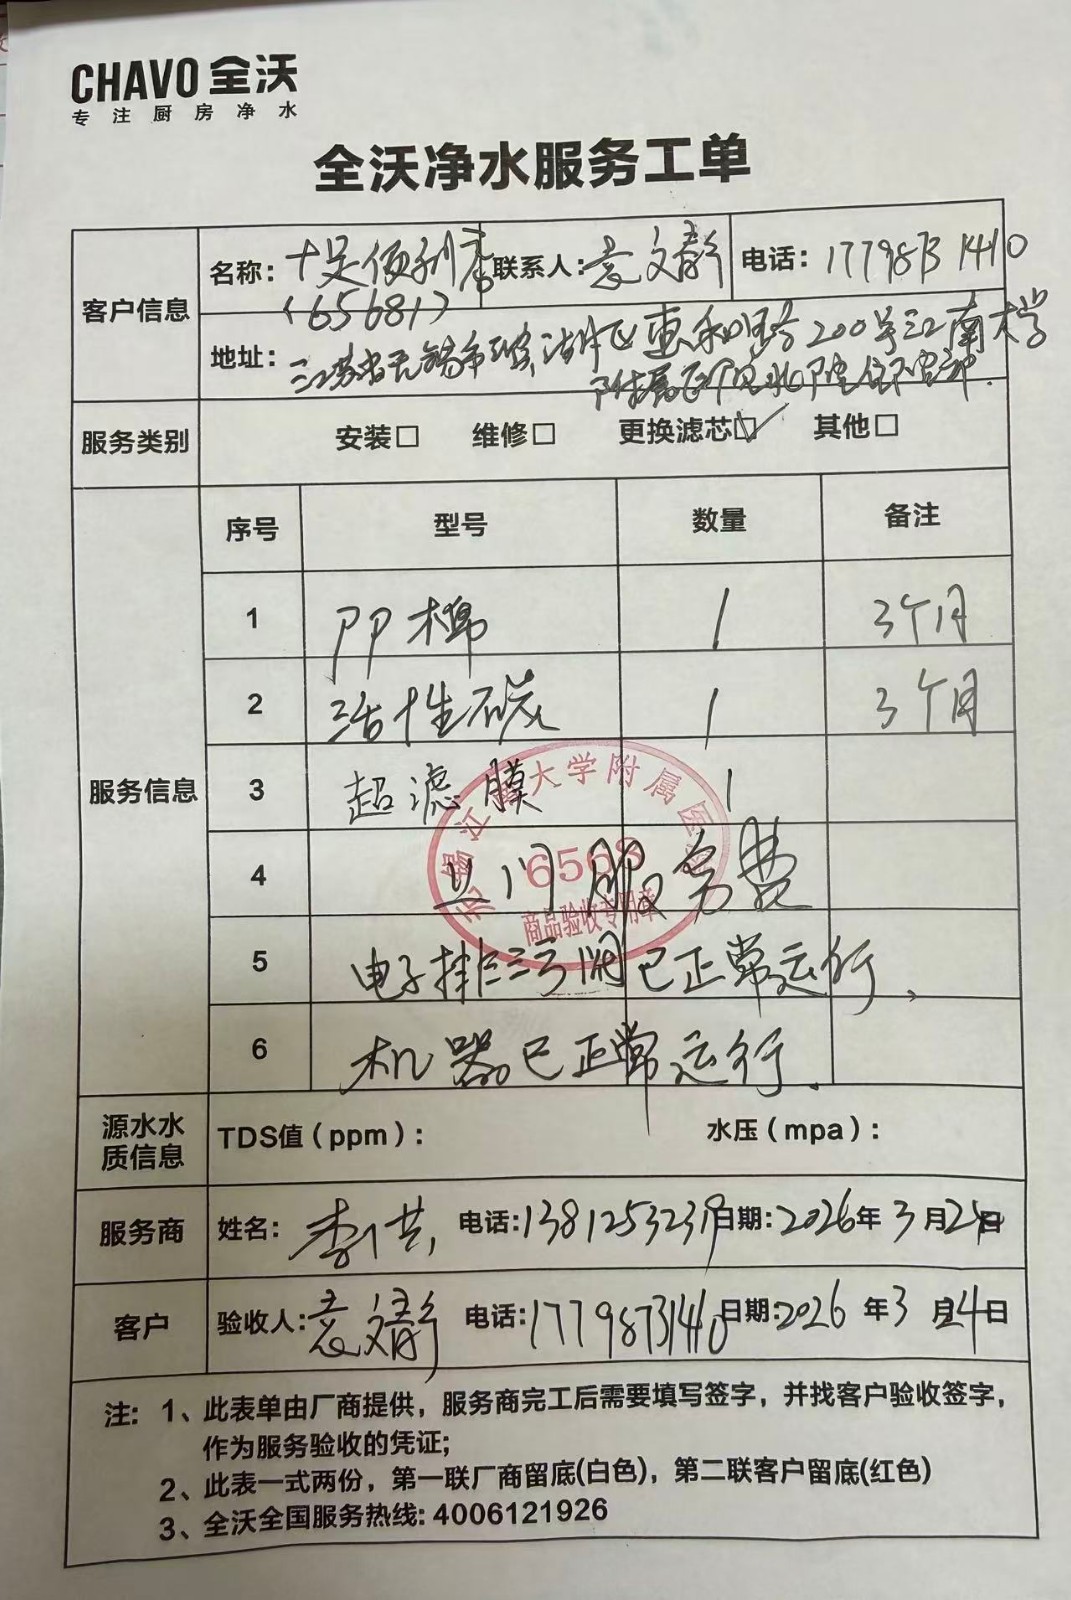 CHAVO 全沃
专注厨房净水
全沃净水服务工单
客户信息
名称：十足便利店（65681） 联系人：袁文静 电话：17798731410
地址：江苏省无锡市滨湖区惠和路200号江南大学
附属医院北院住院部.
服务类别 安装□ 维修□ 更换滤芯☑ 其他□
服务信息
序号 型号 数量 备注
1 PP棉 1 3个月
2 活性碳 1 3个月
3 超滤膜 1
4 上门服务费
5 电子排污阀已正常运行、
6 机器已正常运行.
无锡江南大学附属医院
6568
商品验收专用章
源水水质信息 TDS值（ppm）： 水压（mpa）：
服务商 姓名： 电话：13812532319 日期：2026年3月24日
客户 验收人：袁文静 电话：17798731410 日期：2026年3月24日
注：1、此表单由厂商提供，服务商完工后需要填写签字，并找客户验收签字，
作为服务验收的凭证；
2、此表一式两份，第一联厂商留底(白色)，第二联客户留底(红色)
3、全沃全国服务热线：4006121926